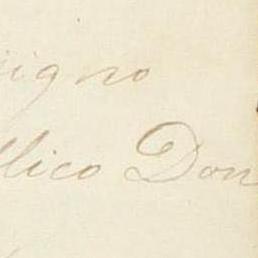 igno
llico Don